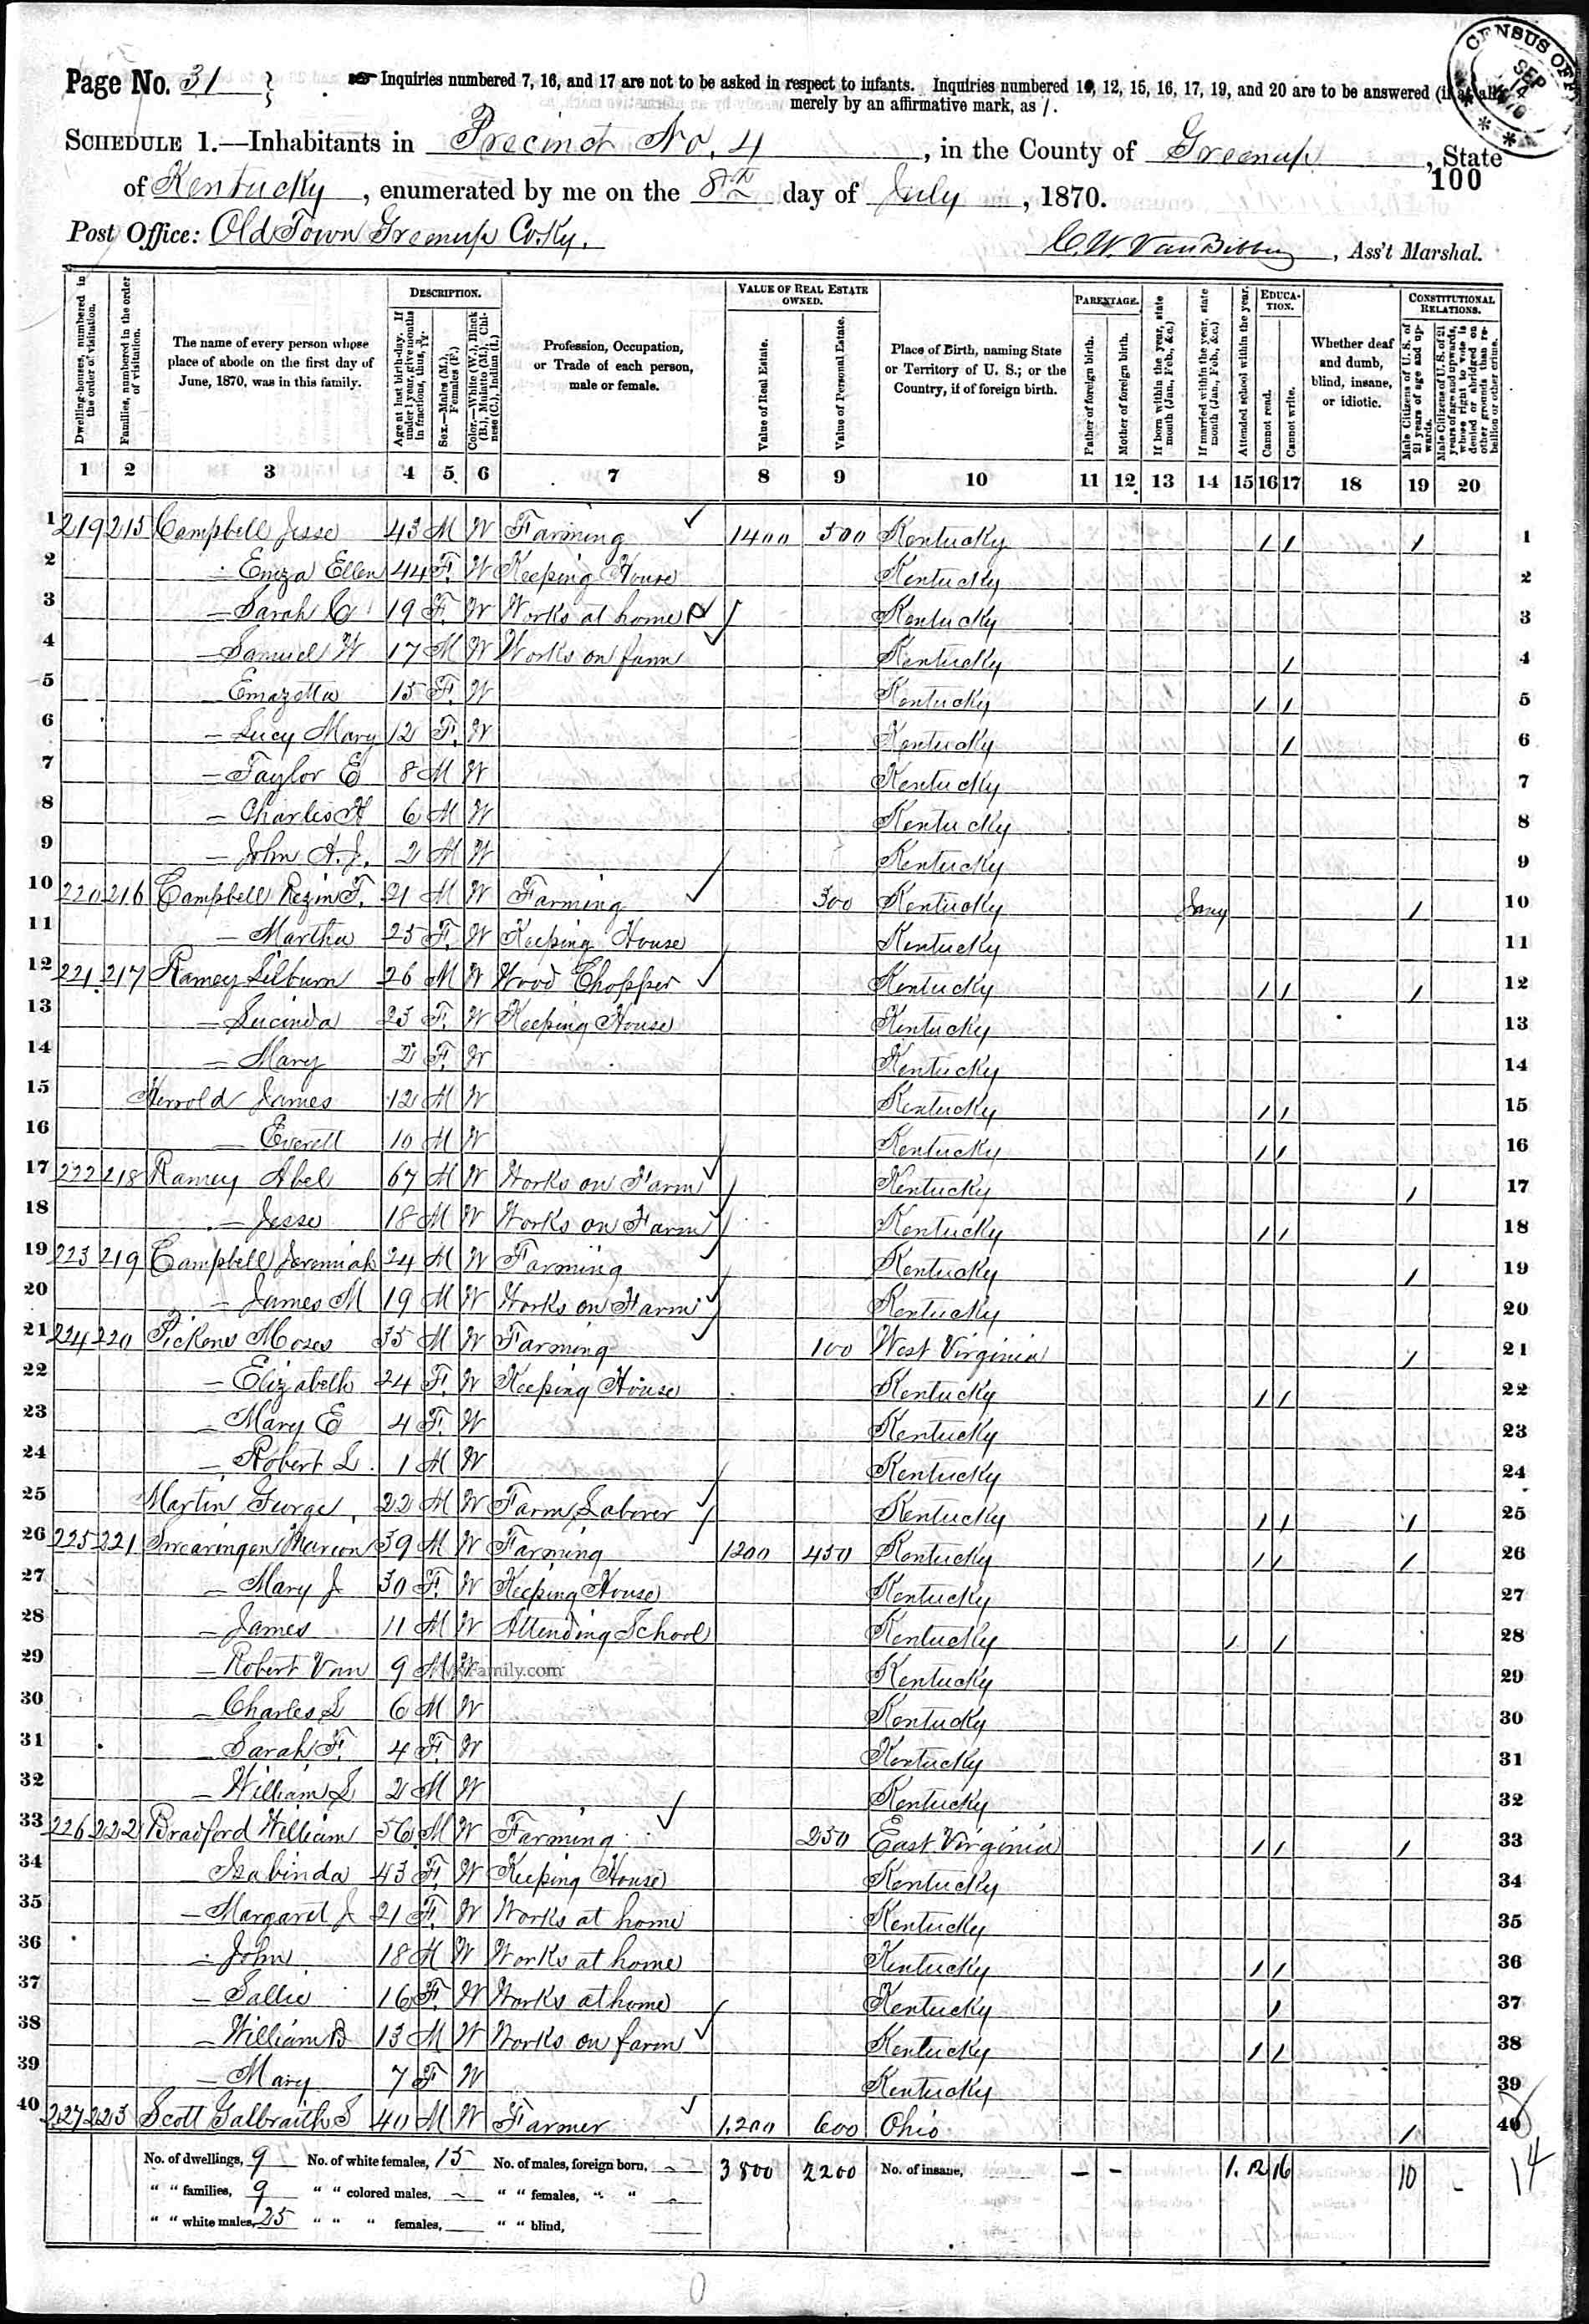 Page No. 31
Inquiries numbered 7, 16, and 17 are not to be asked in respect to infants. Inquiries numbered 11, 12, 15, 16, 17, 19, and 20 are to be answered (if at all)
merely by an affirmative mark, as /.
CENSUS OFF
SEP 14 1870
SCHEDULE 1.—Inhabitants in Precinct No. 4, in the County of Greenup, State
of Kentucky, enumerated by me on the 8th day of July, 1870.
100
Post Office: Old Town Greenup Co. Ky. C. W. VanBibber, Ass't Marshal.
Dwelling-houses, numbered in the order of visitation.
Families, numbered in the order of visitation.
The name of every person whose place of abode on the first day of June, 1870, was in this family.
DESCRIPTION.
Age at last birth-day. If under 1 year, give months in fractions, thus, 3/12.
Sex.—Males (M.), Females (F.)
Color.—White (W.), Black (B.), Mulatto (M.), Chinese (C.), Indian (I.)
Profession, Occupation, or Trade of each person, male or female.
VALUE OF REAL ESTATE OWNED.
Value of Real Estate.
Value of Personal Estate.
Place of Birth, naming State or Territory of U. S.; or the Country, if of foreign birth.
PARENTAGE.
Father of foreign birth.
Mother of foreign birth.
If born within the year, state month (Jan., Feb., &c.)
If married within the year, state month (Jan., Feb., &c.)
Attended school within the year.
EDUCATION.
Cannot read.
Cannot write.
Whether deaf and dumb, blind, insane, or idiotic.
CONSTITUTIONAL RELATIONS.
Male Citizens of U. S. of 21 years of age and upwards.
Male Citizens of U. S. of 21 years of age and upwards, whose right to vote is denied or abridged on other grounds than rebellion or other crime.
1 2 3 4 5 6 7 8 9 10 11 12 13 14 15 16 17 18 19 20
1 219 215 Campbell Jesse 43 M W Farming 1400 500 Kentucky / / / 1
2 Emza Ellen 44 F. W Keeping House Kentucky 2
3 — Sarah C 19 F. W Works at home Kentucky 3
4 — Samuel W 17 M W Works on farm Kentucky / 4
5 Emazetta 15 F. W Kentucky / / 5
6 — Lucy Mary 12 F. W Kentucky / 6
7 — Taylor E 8 M W Kentucky 7
8 — Charles H 6 M W Kentucky 8
9 — John A. J. 2 M W Kentucky 9
10 220 216 Campbell Rezin F. 21 M W Farming 300 Kentucky Jany / 10
11 — Martha 25 F. W Keeping House Kentucky 11
12 221 217 Ramey Lilburn 26 M W Wood Chopper Kentucky / / / 12
13 — Lucinda 23 F. W Keeping House Kentucky 13
14 — Mary 2 F. W Kentucky 14
15 Herrold James 12 M W Kentucky / / 15
16 — Everett 10 M W Kentucky / / 16
17 222 218 Ramey Abel 67 M W Works on Farm Kentucky / 17
18 — Jesse 18 M W Works on Farm Kentucky / / 18
19 223 219 Campbell Jeremiah 24 M W Farming Kentucky / 19
20 — James M 19 M W Works on Farm Kentucky 20
21 224 220 Pickens Moses 35 M W Farming 100 West Virginia / 21
22 — Elizabeth 24 F. W Keeping House Kentucky / / 22
23 — Mary E 4 F. W Kentucky 23
24 — Robert L. 1 M W Kentucky 24
25 Martin George, 22 M W Farm Laborer Kentucky / / / 25
26 225 221 Swearingen Marion 39 M W Farming 1200 450 Kentucky / / / 26
27 — Mary J 30 F. W Keeping House Kentucky 27
28 — James 11 M W Attending School Kentucky / / 28
29 — Robert Van 9 M W Kentucky 29
MyFamily.com
30 — Charles L 6 M W Kentucky 30
31 — Sarah F. 4 F. W Kentucky 31
32 — William L 2 M W Kentucky 32
33 226 222 Bradford William 56 M W Farming 250 East Virginia / / / 33
34 Isabinda 43 F. W Keeping House Kentucky 34
35 — Margaret J 21 F. W Works at home Kentucky 35
36 — John 18 M W Works at home Kentucky / / 36
37 — Sallie 16 F. W Works at home Kentucky / 37
38 — William B 13 M W Works on farm Kentucky / / 38
39 — Mary 7 F W Kentucky 39
40 227 223 Scott Galbraith S 40 M W Farmer 1,200 600 Ohio / 40
No. of dwellings, 9 No. of white females, 15 No. of males, foreign born, — 3800 2200 No. of insane, — — 1. 12 16 10 - 14
" " families, 9 " " colored males, — " " females, " " —
" " white males, 25 " " " females, " " blind,
0